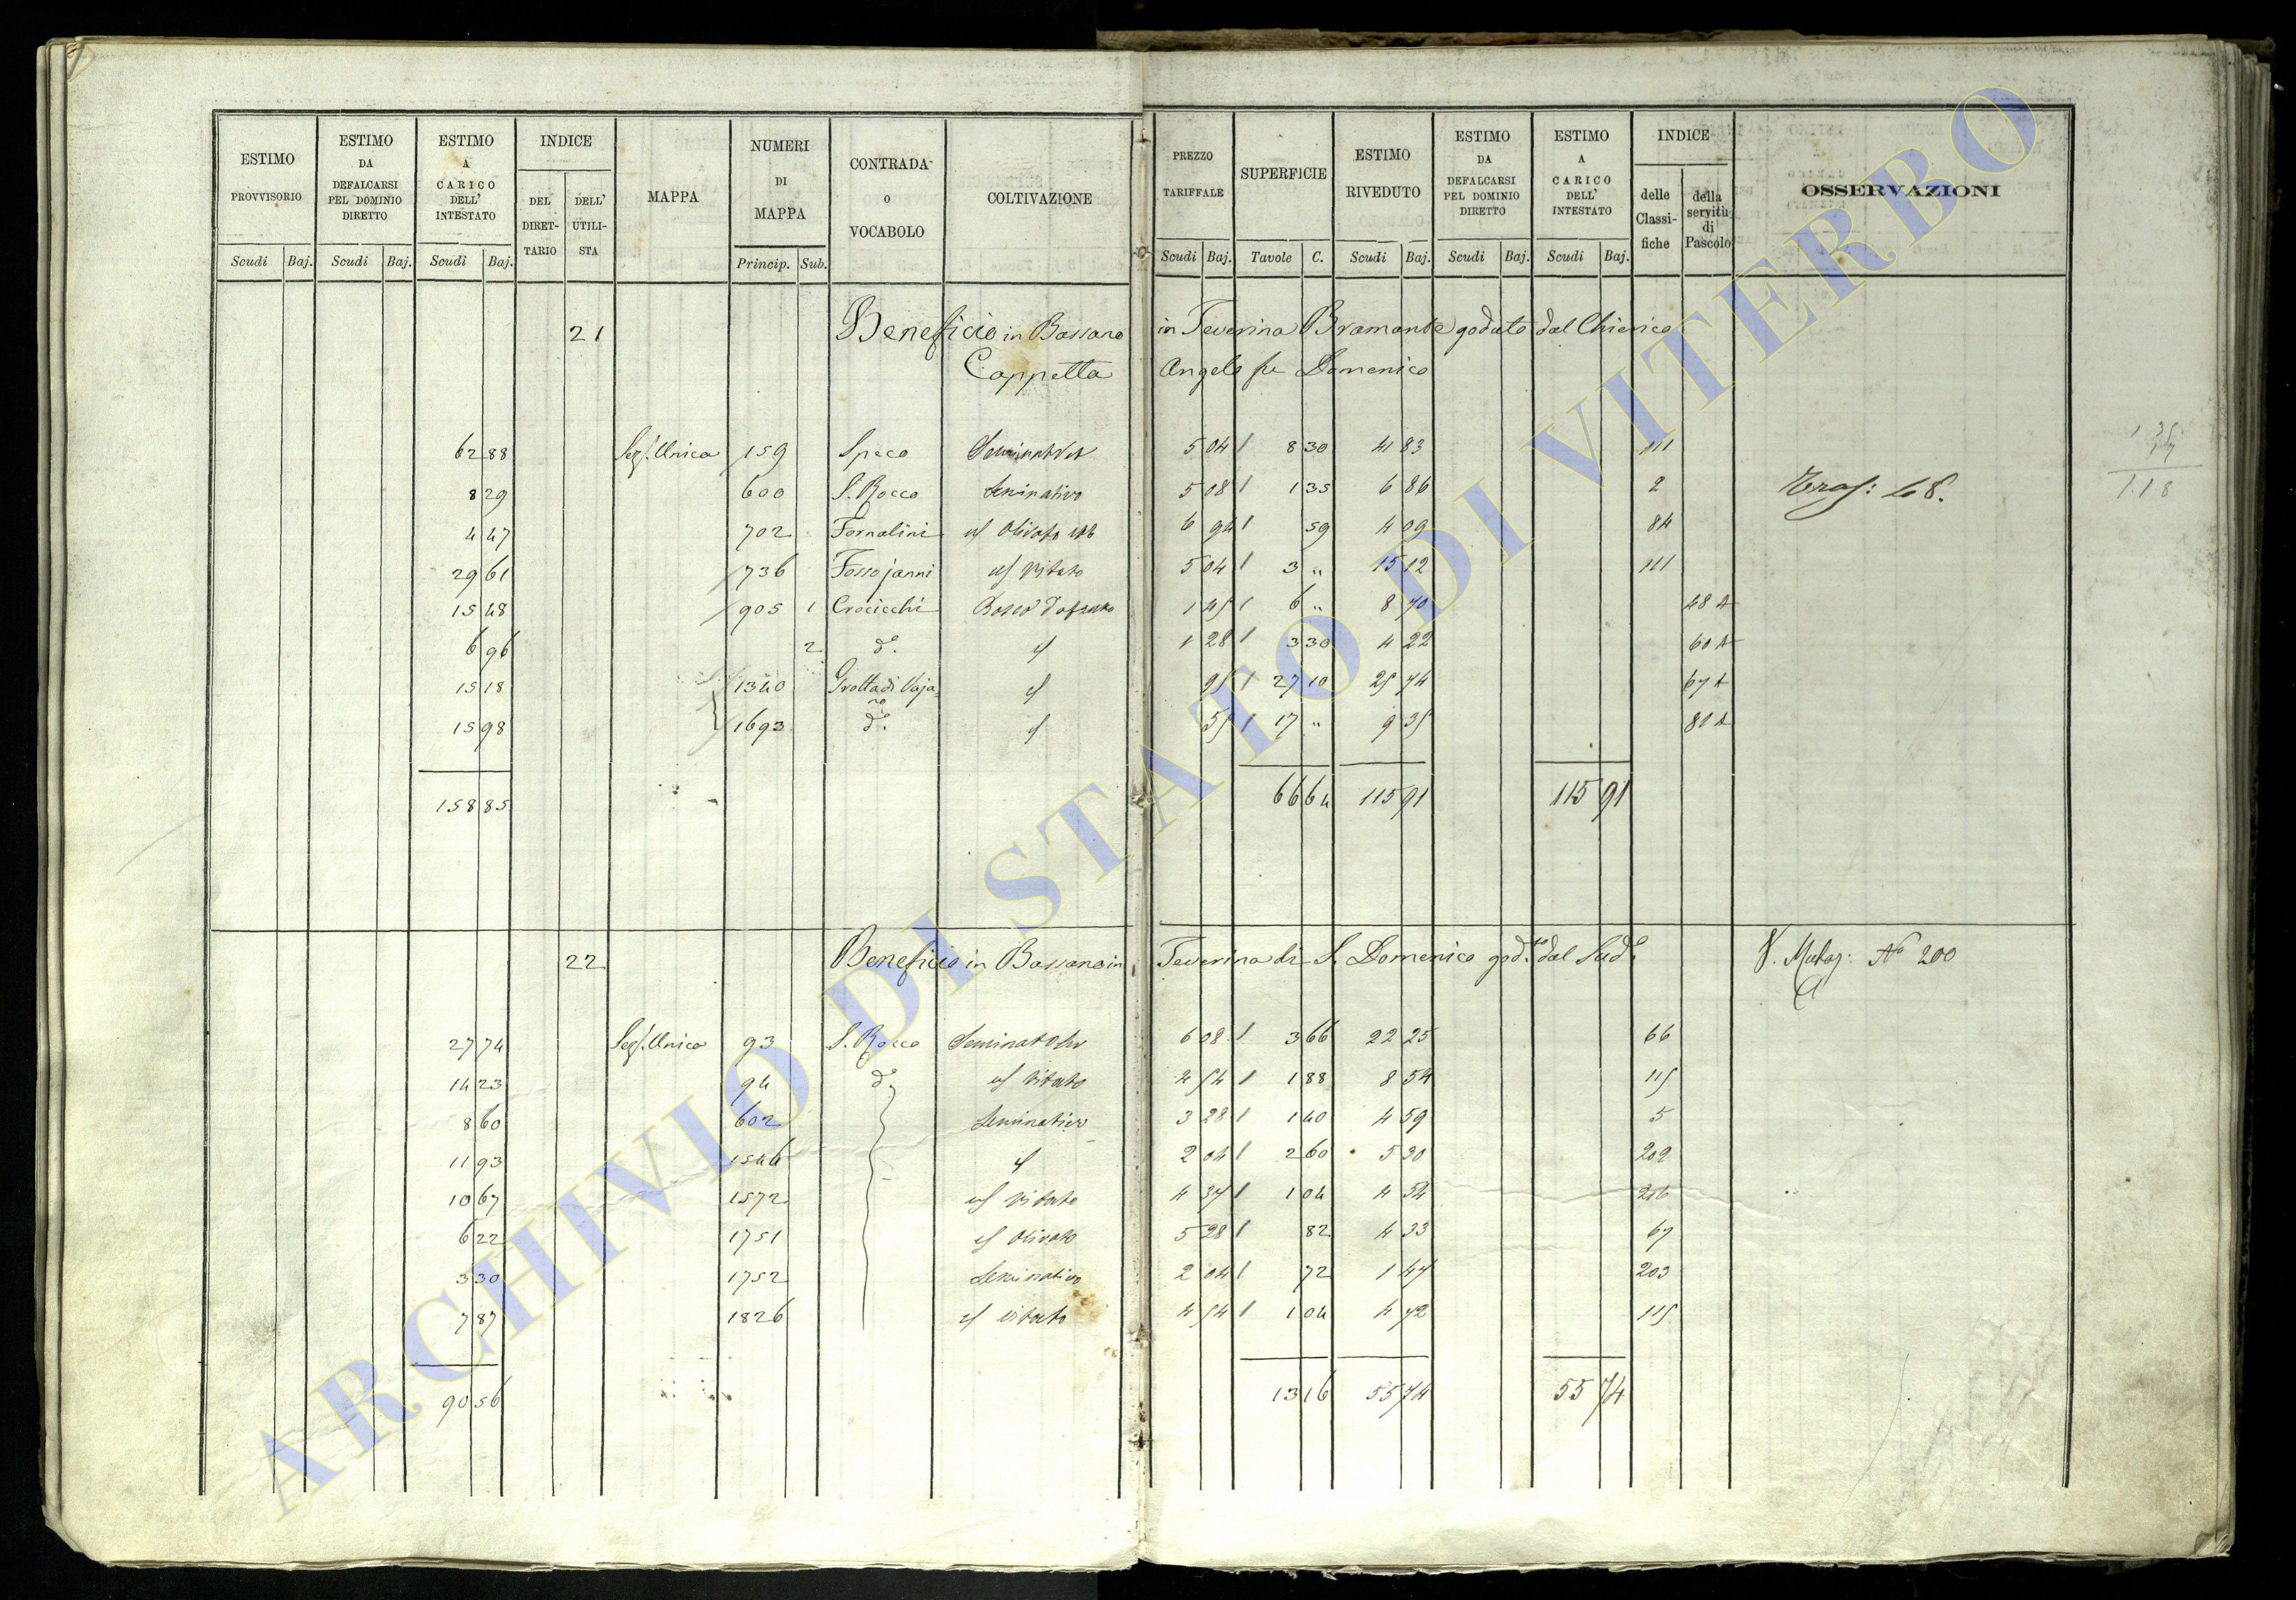 ESTIMO PROVVISORIO Scudi Baj. ESTIMO DA DEFALCARSI PEL DOMINIO DIRETTO Scudi Baj. ESTIMO A CARICO DELL' INTESTATO Scudi Baj. INDICE DEL DIRET-TARIO DELL' UTILI-STA MAPPA NUMERI DI MAPPA Princip. Sub. CONTRADA o VOCABOLO COLTIVAZIONE PREZZO TARIFFALE Scudi Baj. SUPERFICIE Tavole C. ESTIMO RIVEDUTO Scudi Baj. ESTIMO DA DEFALCARSI PEL DOMINIO DIRETTO Scudi Baj. ESTIMO A CARICO DELL' INTESTATO Scudi Baj. INDICE delle Classi-fiche della servitù di Pascolo OSSERVAZIONI
21 Beneficio in Bassano in Teverina Bramante goduto dal Chierico
Cappetta Angelo fu Domenico
62 88 Sez. Unica 159 Speco 5 04 8 30 41 83 111
8 29 600 S. Rocco Seminativo 5 08 1 35 6 86 2 Trasf: 68.
4 47 702 Fornalini Olivato 6 94 59 4 09 84
29 61 736 Fossojanni Vitato 5 04 3 " 15 12 111
15 48 905 1 Crocicchi Bosco 1 45 6 " 8 70 48 A
6 96 2 d.o 1 28 3 30 4 22 60 A
15 18 1340 Grotta di Vajano 95 27 10 25 74 67 A
15 98 1693 d.o 55 17 " 9 35 81 A
158 85 66 64 115 91 115 91
22 Beneficio in Bassano in Teverina di S. Domenico god.to dal Sud.o V. Mutaz: N.o 200
27 74 Sez. Unica 93 S. Rocco Seminat Oliv 6 08 3 66 22 25 66
14 23 94 d.o Vitato 4 54 1 88 8 54 115
8 60 602 Seminativo 3 28 1 40 4 59 5
11 93 1546 2 04 2 60 5 30 202
10 67 1572 Vitato 4 37 1 04 4 54 216
6 22 1751 Olivato 5 28 82 4 33 67
3 30 1752 Seminativo 2 04 72 1 47 203
7 87 1826 Vitato 4 54 1 04 4 72 115
90 56 13 16 55 74 55 74
ARCHIVIO DI STATO DI VITERBO